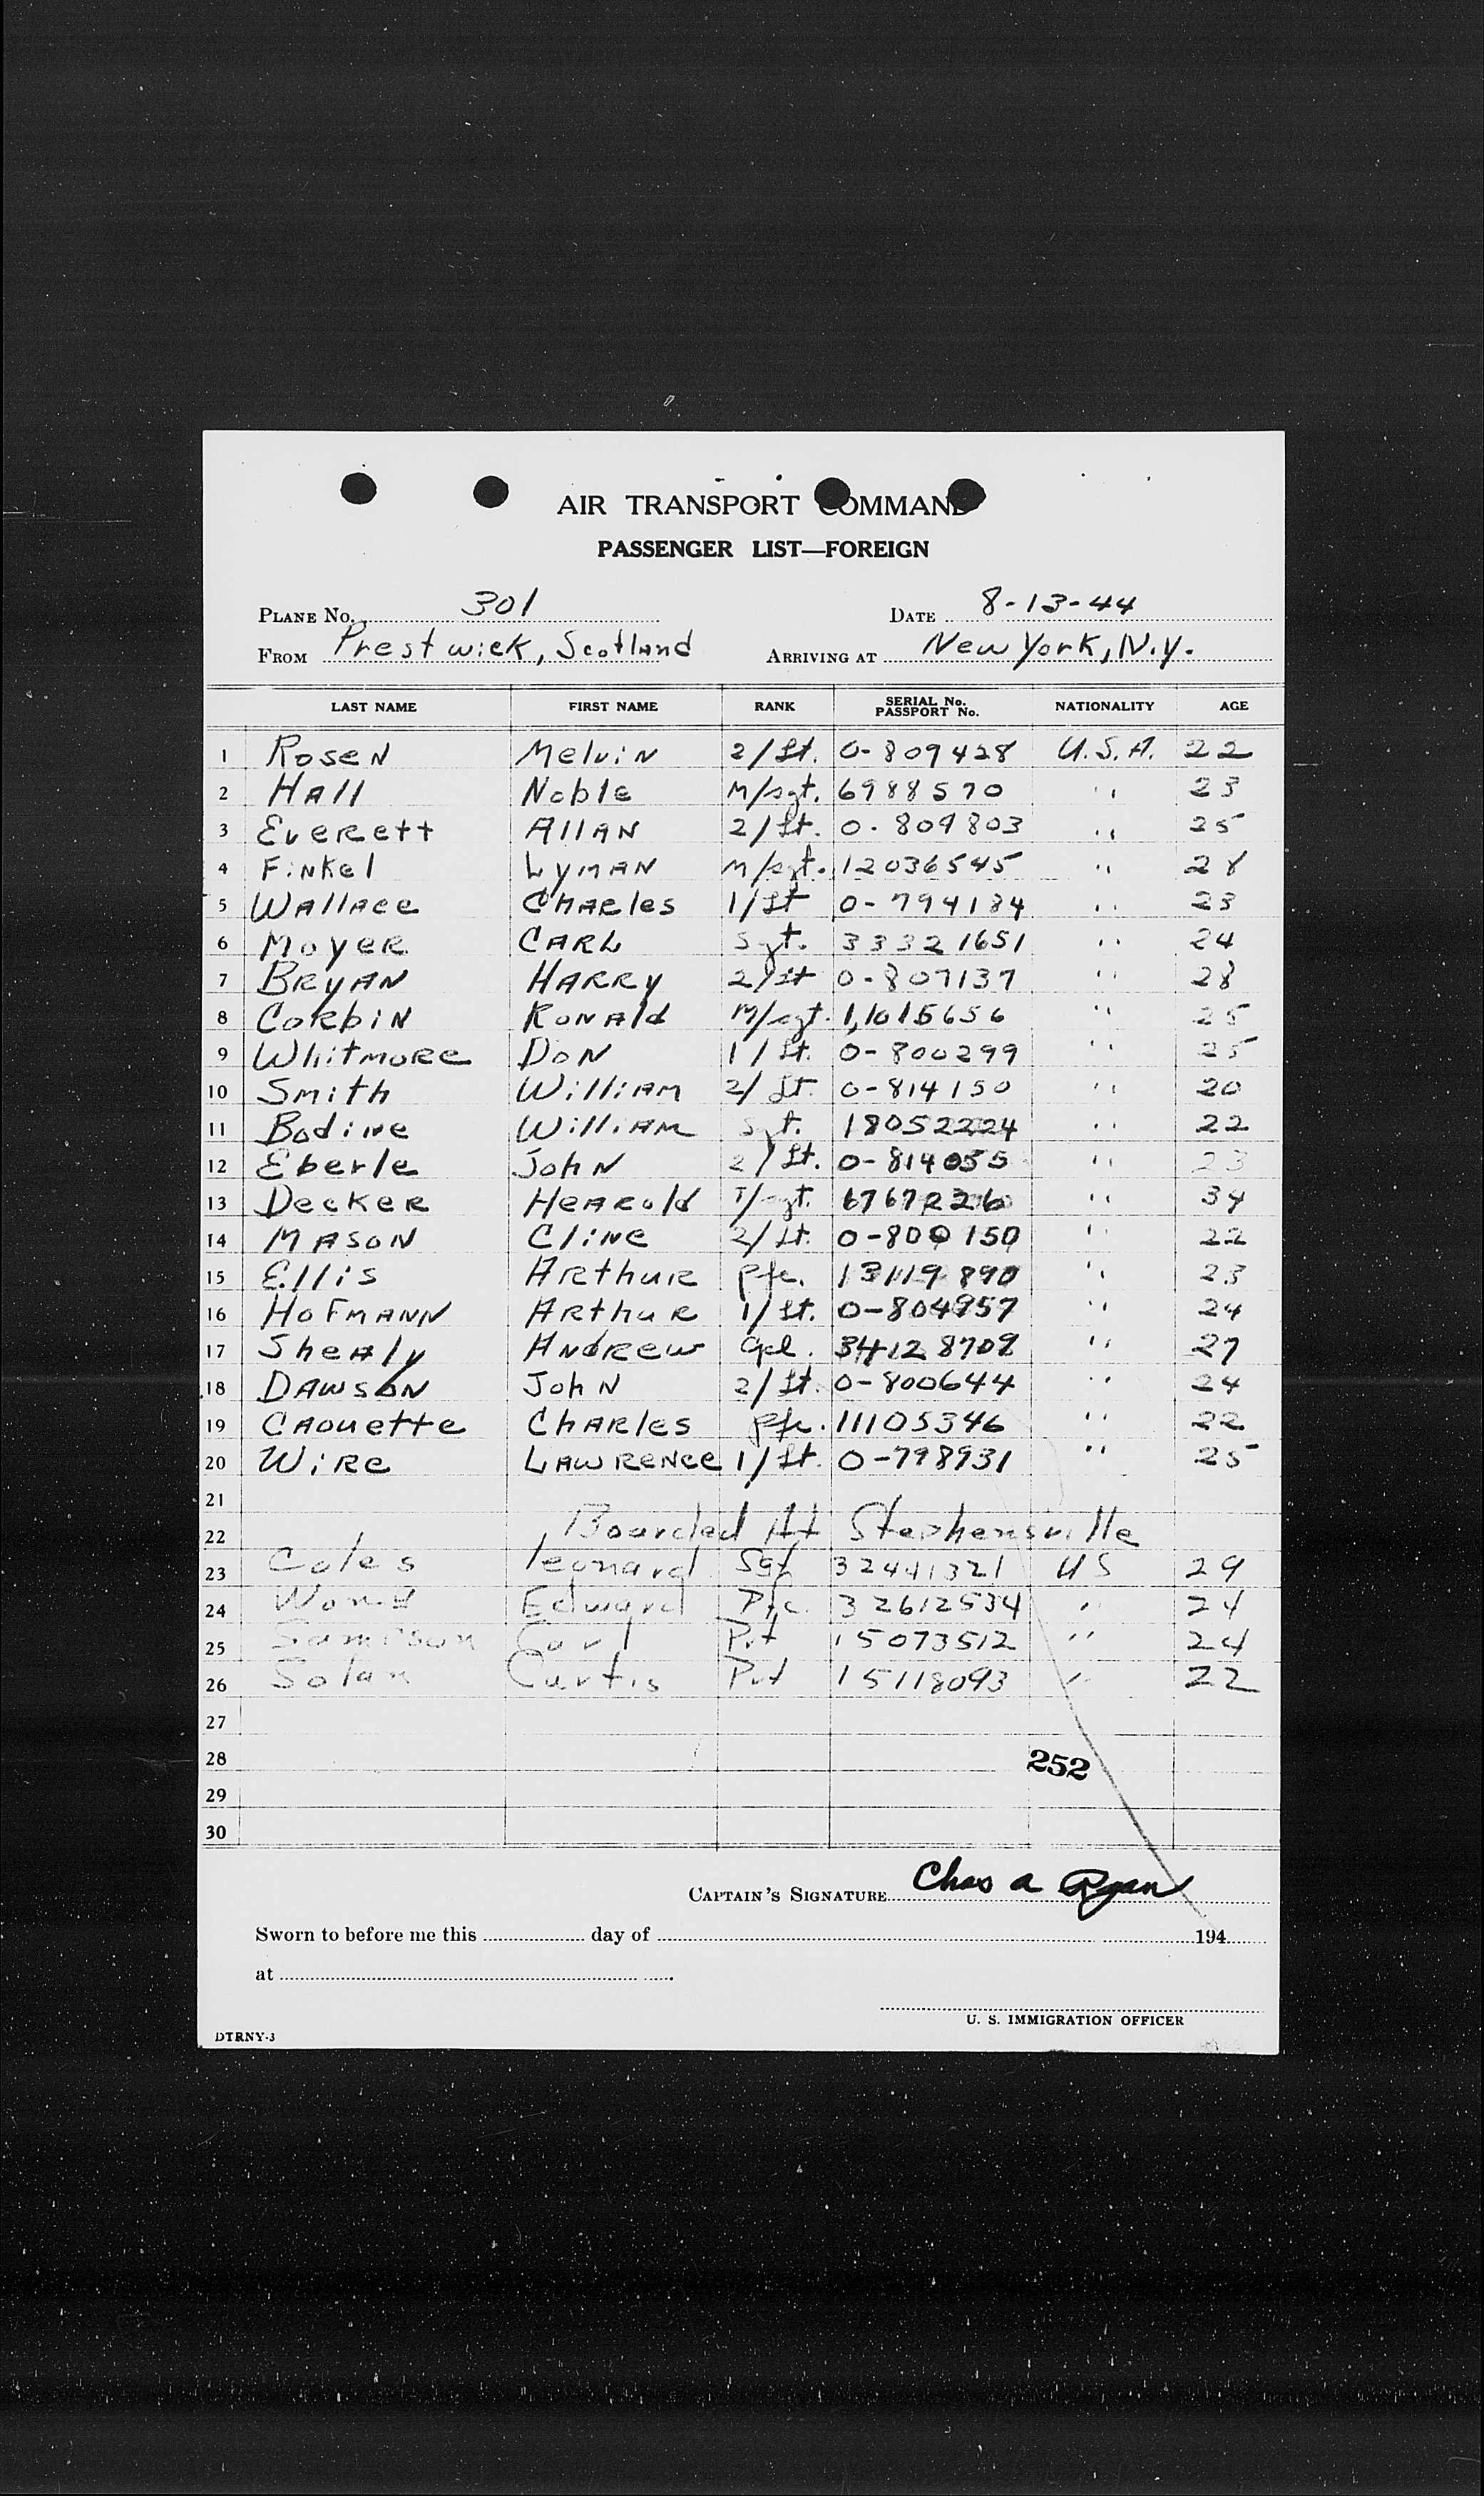 AIR TRANSPORT COMMAND
PASSENGER LIST—FOREIGN
PLANE No. 301 DATE 8-13-44
FROM Prestwick, Scotland ARRIVING AT New York, N.Y.
LAST NAME FIRST NAME RANK SERIAL No. PASSPORT No. NATIONALITY AGE
1 Rosen Melvin 2/Lt. 0-809428 U.S.A. 22
2 Hall Noble M/sgt. 6988570 " 23
3 Everett Allan 2/Lt. 0-809803 " 25
4 Finkel Lyman M/sgt. 12036545 " 28
5 Wallace Charles 1/Lt 0-794184 " 23
6 Moyer Carl Sgt. 33321651 " 24
7 Bryan Harry 2/Lt 0-807137 " 28
8 Corbin Ronald M/sgt. 11015656 " 25
9 Whitmore Don 1/Lt. 0-800299 " 25
10 Smith William 2/Lt. 0-814150 " 20
11 Bodine William Sgt. 18052224 " 22
12 Eberle John 2/Lt. 0-814055 " 23
13 Decker Hearold T/sgt. 6767226 " 34
14 Mason Cline 2/Lt. 0-800150 " 22
15 Ellis Arthur Pfc. 13119890 " 23
16 Hofmann Arthur 1/Lt. 0-804957 " 24
17 Shealy Andrew Cpl. 34128709 " 27
18 Dawson John 2/Lt. 0-800644 " 24
19 Caouette Charles Pfc. 11105346 " 22
20 Wire Lawrence 1/Lt. 0-798931 " 25
21
22 Boarded At Stephensville
23 Coles Leonard Sgt 32441321 US 29
24 Edward Pfc. 32612534 " 24
25 Sampson Carl Pvt 15073512 " 24
26 Solan Curtis Pvt 15118093 " 22
27
28 252
29
30
CAPTAIN'S SIGNATURE Chas a Ryan
Sworn to before me this day of 194
at
U. S. IMMIGRATION OFFICER
DTRNY-3